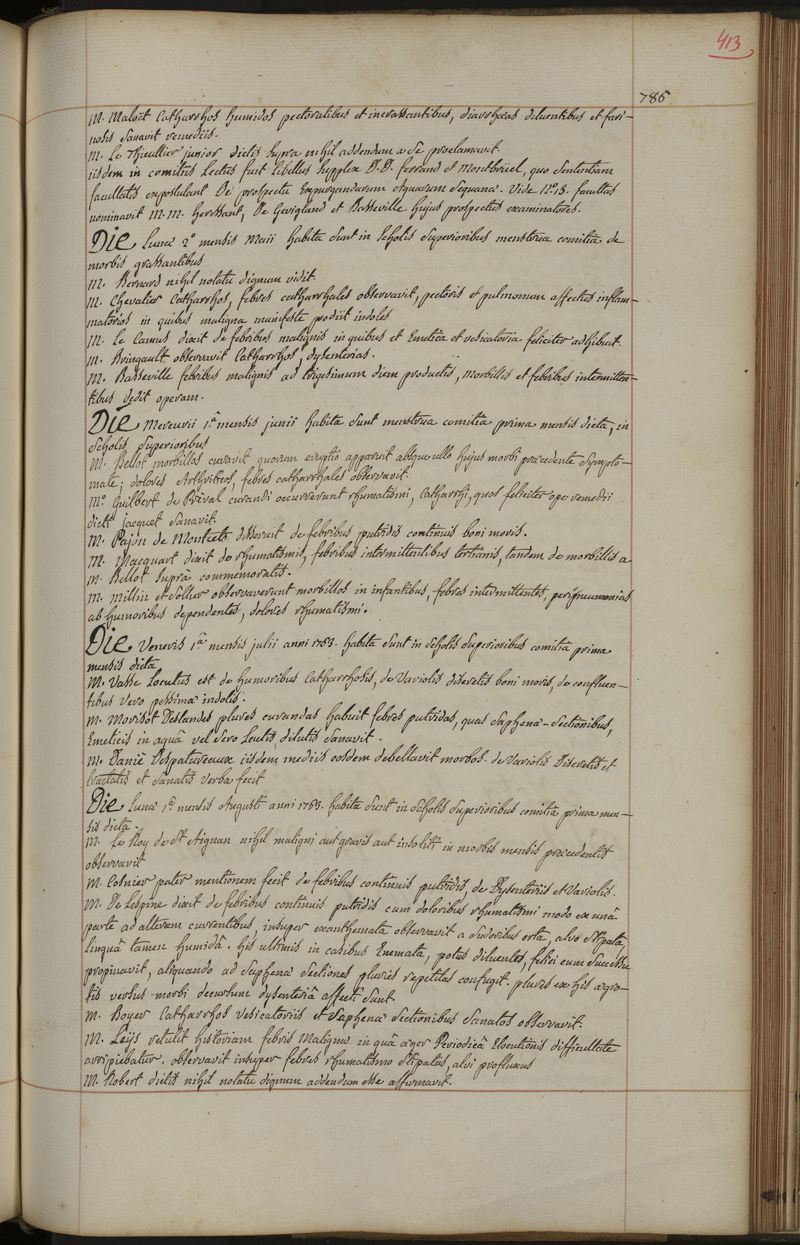 413
786
M. Maloët Catharrhos humidos pectoralibus et incrassantibus, diarrhæas diluentibus et fari-
nosis sanavit remediis.
M. Le Thieullier junior dictis supra nihil addendum a se proclamavit.
iisdem in comitiis Lectus fuit Libellus supplex D.D. ferrand et Montbruel, quo sententiam
facultatis expostulant De prospectu Expurgandarum Aquarum Sequanæ. Vide N.° 13. facultas
nominavit M.M. herissant, De Gevigland et Basseville hujus prospectus examinatores.
Die Lunæ 2.° mensis Maii habita sunt in Scholis Superioribus menstrua comitia de
morbis grassantibus
M. Bernard nihil notatu dignum vidit.
M. Chevalier Catharrhos, febres catharrhales observavit, pectoris et pulmonum affectus inflam-
matorios in quibus maligna manifeste prodiit indoles
M. Le Camus dixit de febribus malignis in quibus et Emetica et vesicatoria feliciter adhibuit.
M. Bringault observavit Catharrhos, dysenterias.
M. Basseville febribus malignis ad trigesimum diem productis, morbillis et febribus intermitten-
tibus dedit operam.
Die Mercurii 1.ª mensis junii habita sunt menstrua comitia prima mensis dicta, in
Scholis Superioribus
M. Bellot morbillos curavit quorum eruptio apparuit absque ullo hujus morbi præcedente sympto-
mate; dolores Arthriticos, febres catharrhales observavit.
M.° Guilbert de Préval curandi occurrerunt rhumatismi, Catharrhi, quos feliciter ope remedii
dicti jacquet sanavit.
M. Pajon de Moncets disseruit de febribus putridis continuis boni moris.
M. Macquart dixit de rhumatismis, febribus intermittentibus tertianis, tandem de morbillis a
M. Bellot suprà commemoratis.
M. Millin et Sollier observaverunt morbillos in infantibus, febres intermittentes, peripneumonias
ab humoribus dependentes, dolores rhumatismi.
Die Veneris 1.ª mensis julii anni 1763. habita sunt in Scholis Superioribus comitia prima
mensis dicta
M. Vasse Locutus est de humoribus Catharrhosis, de Variolis discretis boni moris, de confluen-
tibus vero pessimæ indolis.
M. Morisot Deslandes plures curandas habuit febres putridas, quas saphenæ-sectionibus,
Emeticis in aquâ vel sero Lactis dilutis sanavit.
M. Danié Despatureaux iisdem mediis eosdem debellavit morbos. de Variolis Discretis et
tractatis et sanatis verba fecit
Die Lunæ 1.ª mensis Augusti anni 1763. habita sunt in Scholis Superioribus comitia prima men-
sis dicta.
M. Le Roy de St Aignan nihil maligni aut gravis aut insoliti in morbis mensis præcedentis
observavit
M. Cosnier pater mentionem fecit de febribus continuis putridis, de Dysenteriis et Variolis.
M. De Lespine dixit de febribus continuis putridis cum doloribus rhumatismi modo ex unâ
parte ad alteram currentibus, insuper exanthemata observavit a sudoribus orta, alvo stipata,
Linguâ tamen humidâ. his ultimis in casibus Enemata, potus diluentes, felici cum successu
propinavit, aliquando ad Saphenæ Sectiones pluries repetitas confugit. plures ex his ægro-
tis versus morbi decursum dysenteriâ affecti sunt.
M. Boyer Catharrhos vesicatoriis et Saphenæ Sectionibus Sanatos observavit.
M. Leys retulit historiam febris malignæ in quâ æger Periodicâ Elocutionis difficultate
arripiebatur. observavit insuper febres rhumatismo stipatas, alvi profluvia
M. Robert dictis nihil notatu dignum addendum esse affirmavit.